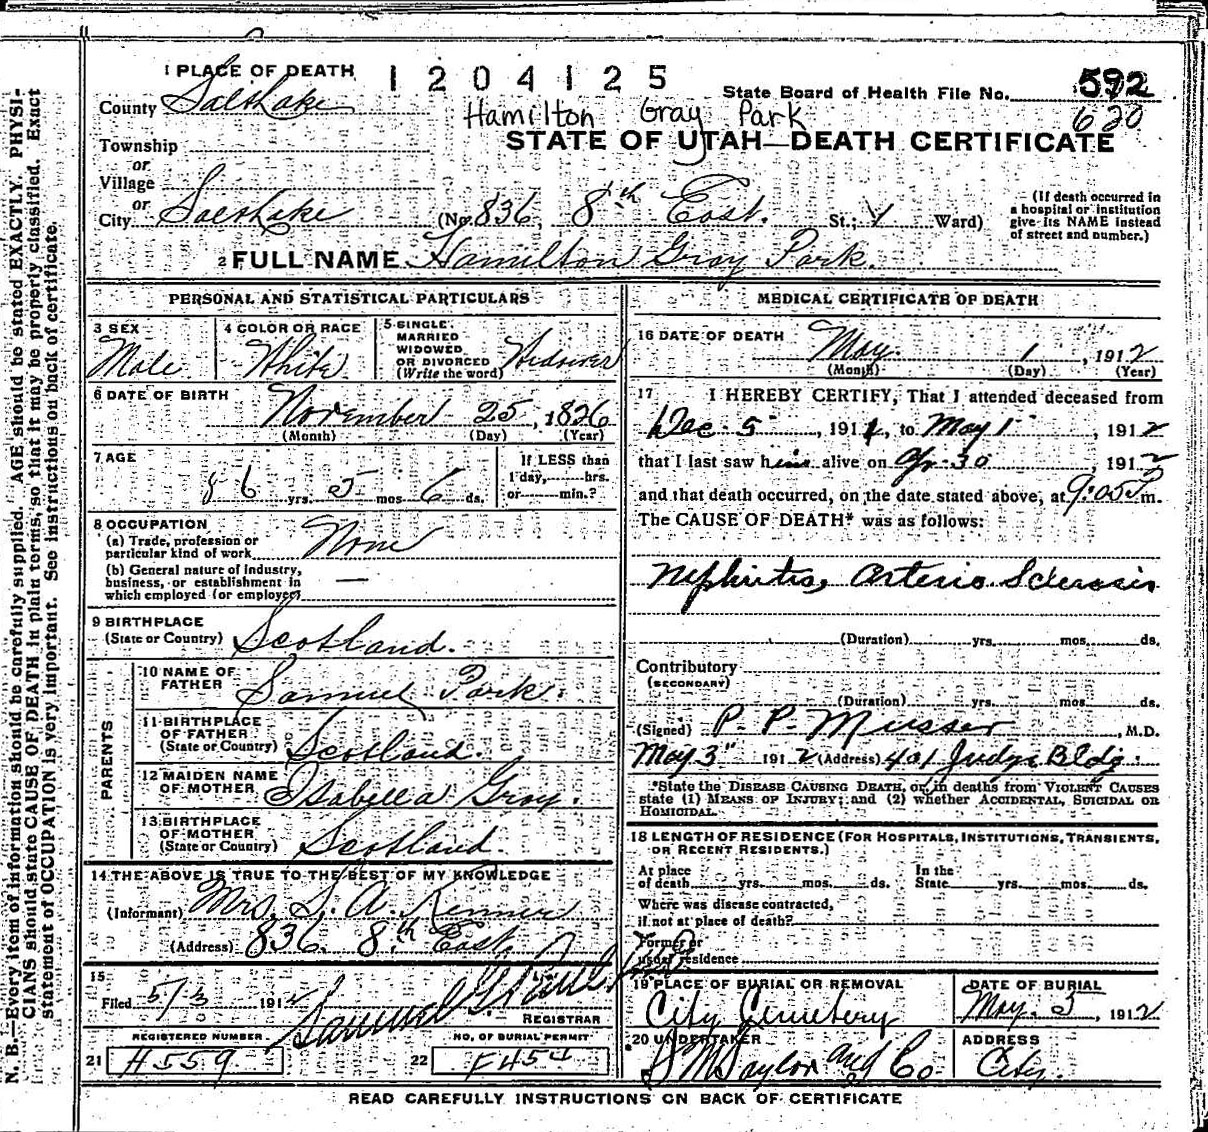 1 PLACE OF DEATH
1204125
State Board of Health File No. 592
County Salt Lake
Hamilton Gray Park
620
STATE OF UTAH—DEATH CERTIFICATE
Township
or
Village
or
City Salt Lake (No. 836, 8th East. St.; V Ward)
(If death occurred in a hospital or institution give its NAME instead of street and number.)
2 FULL NAME Hamilton Gray Park.
PERSONAL AND STATISTICAL PARTICULARS
3 SEX Male
4 COLOR OR RACE White
5 SINGLE, MARRIED WIDOWED, OR DIVORCED (Write the word) Widower
6 DATE OF BIRTH
November 25, 1826
(Month) (Day) (Year)
7 AGE
86 yrs. 5 mos. 6 ds.
If LESS than 1 day,......hrs. or......min.?
8 OCCUPATION
(a) Trade, profession or particular kind of work None
(b) General nature of industry, business, or establishment in which employed (or employer) —
9 BIRTHPLACE
(State or Country) Scotland.
PARENTS
10 NAME OF FATHER Samuel Park.
11 BIRTHPLACE OF FATHER (State or Country) Scotland.
12 MAIDEN NAME OF MOTHER Isabella Gray.
13 BIRTHPLACE OF MOTHER (State or Country) Scotland.
14 THE ABOVE IS TRUE TO THE BEST OF MY KNOWLEDGE
(Informant) Mrs. S. A. Kenner
(Address) 836. 8th East.
15
Filed 5/3 1912 Samuel G.
REGISTRAR
REGISTERED NUMBER
21 H559
NO. OF BURIAL PERMIT
22 F454
MEDICAL CERTIFICATE OF DEATH
16 DATE OF DEATH
May 1, 1912
(Month) (Day) (Year)
17 I HEREBY CERTIFY, That I attended deceased from
Dec-5, 1911, to May 1, 1912
that I last saw him alive on Ap-30, 1912
and that death occurred, on the date stated above, at 9:05 P.m.
The CAUSE OF DEATH* was as follows:
Nephritis, Arterio Sclerosis
(Duration) yrs. mos. ds.
Contributory
(SECONDARY)
(Duration) yrs. mos. ds.
(Signed) P. P. Musser, M.D.
May 3" 1912 (Address) 401 Judge Bldg.
*State the DISEASE CAUSING DEATH, or, in deaths from VIOLENT CAUSES
state (1) MEANS OF INJURY; and (2) whether ACCIDENTAL, SUICIDAL OR
HOMICIDAL.
18 LENGTH OF RESIDENCE (FOR HOSPITALS, INSTITUTIONS, TRANSIENTS,
OR RECENT RESIDENTS.)
At place of death yrs. mos. ds. In the State yrs. mos. ds.
Where was disease contracted,
if not at place of death?
Former or
usual residence
19 PLACE OF BURIAL OR REMOVAL
City Cemetery
DATE OF BURIAL
May. 5, 1912
20 UNDERTAKER
S M Taylor and Co.
ADDRESS
City.
READ CAREFULLY INSTRUCTIONS ON BACK OF CERTIFICATE
N. B.—Every item of information should be carefully supplied. AGE should be stated EXACTLY. PHYSI-
CIANS should state CAUSE OF DEATH in plain terms, so that it may be properly classified. Exact
statement of OCCUPATION is very important. See instructions on back of certificate.